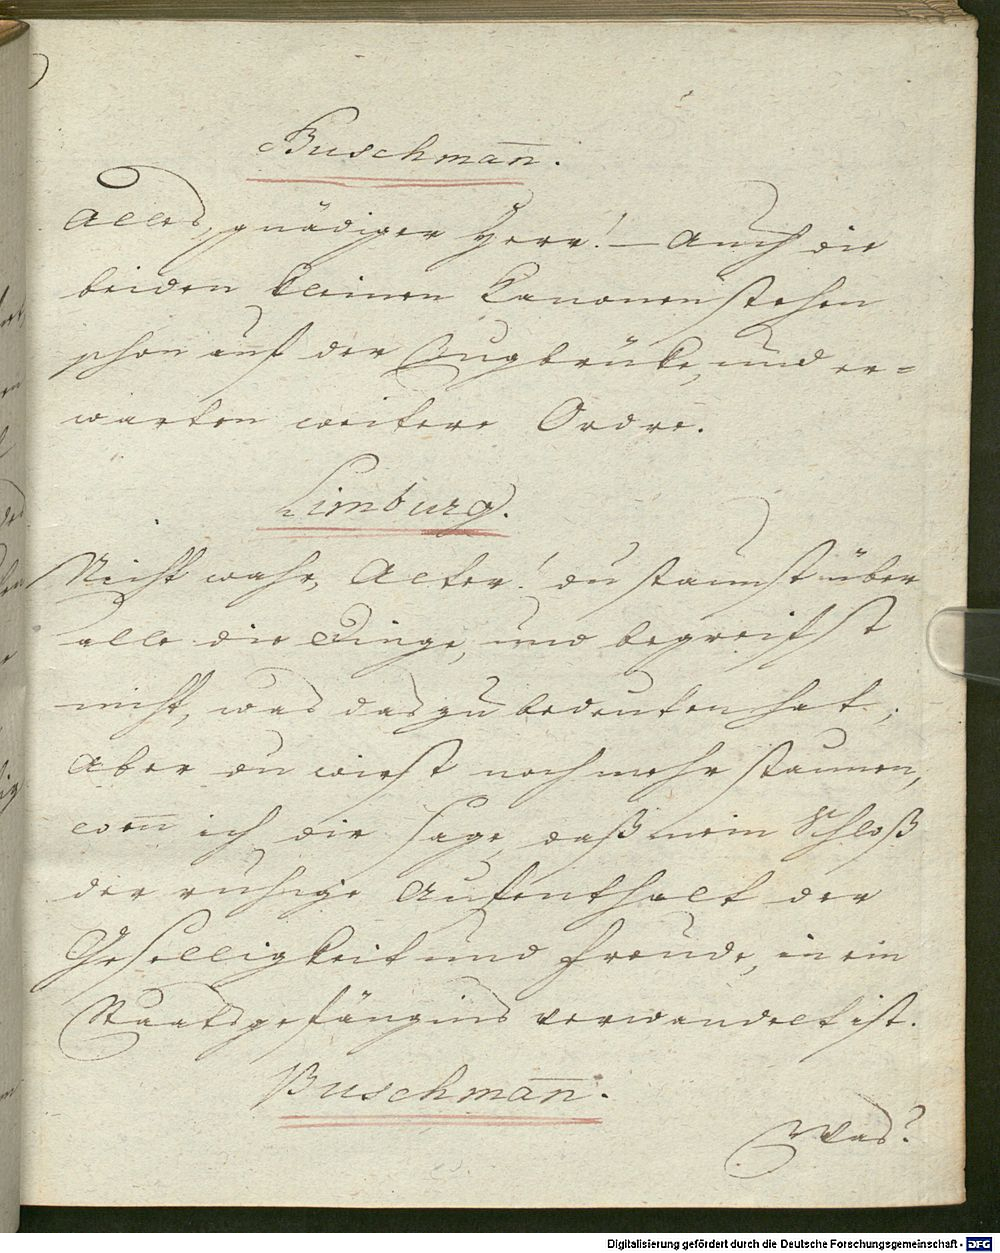 Buschman̅.
Alles, gnädiger Herr! – Auch die
beiden kleinen Kanonen stehen
schon auf der Zugbrüke, und er=
warten weitere Ordre.
Limburg.
Nicht wahr, Alter! du staunst über
alle die Dinge, und begreifst
nicht, was das zu bedeuten hat;
Aber du wirst noch mehr staunen,
wen̅ ich dir sage, daß mein Schloß
der ruhige Aufenthalt der
Geselligkeit und Freude, in ein
Staatsgefängnis verwandelt ist.
Buschman̅.
Was?
Digitalisierung gefördert durch die Deutsche Forschungsgemeinschaft - DFG